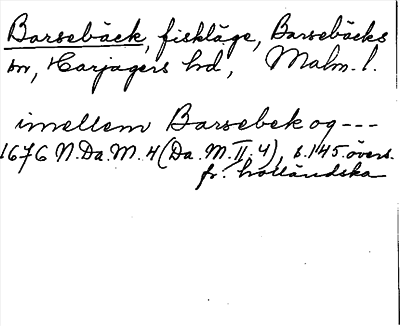 Barsebäck, fiskläge, Barsebäcks
sn, Harjagers hd, Malm. l.
imellem Barsebek og ---
1676 N. Da. M. 4 (Da. M. II. 4), s. 145. övers.
fr. holländska